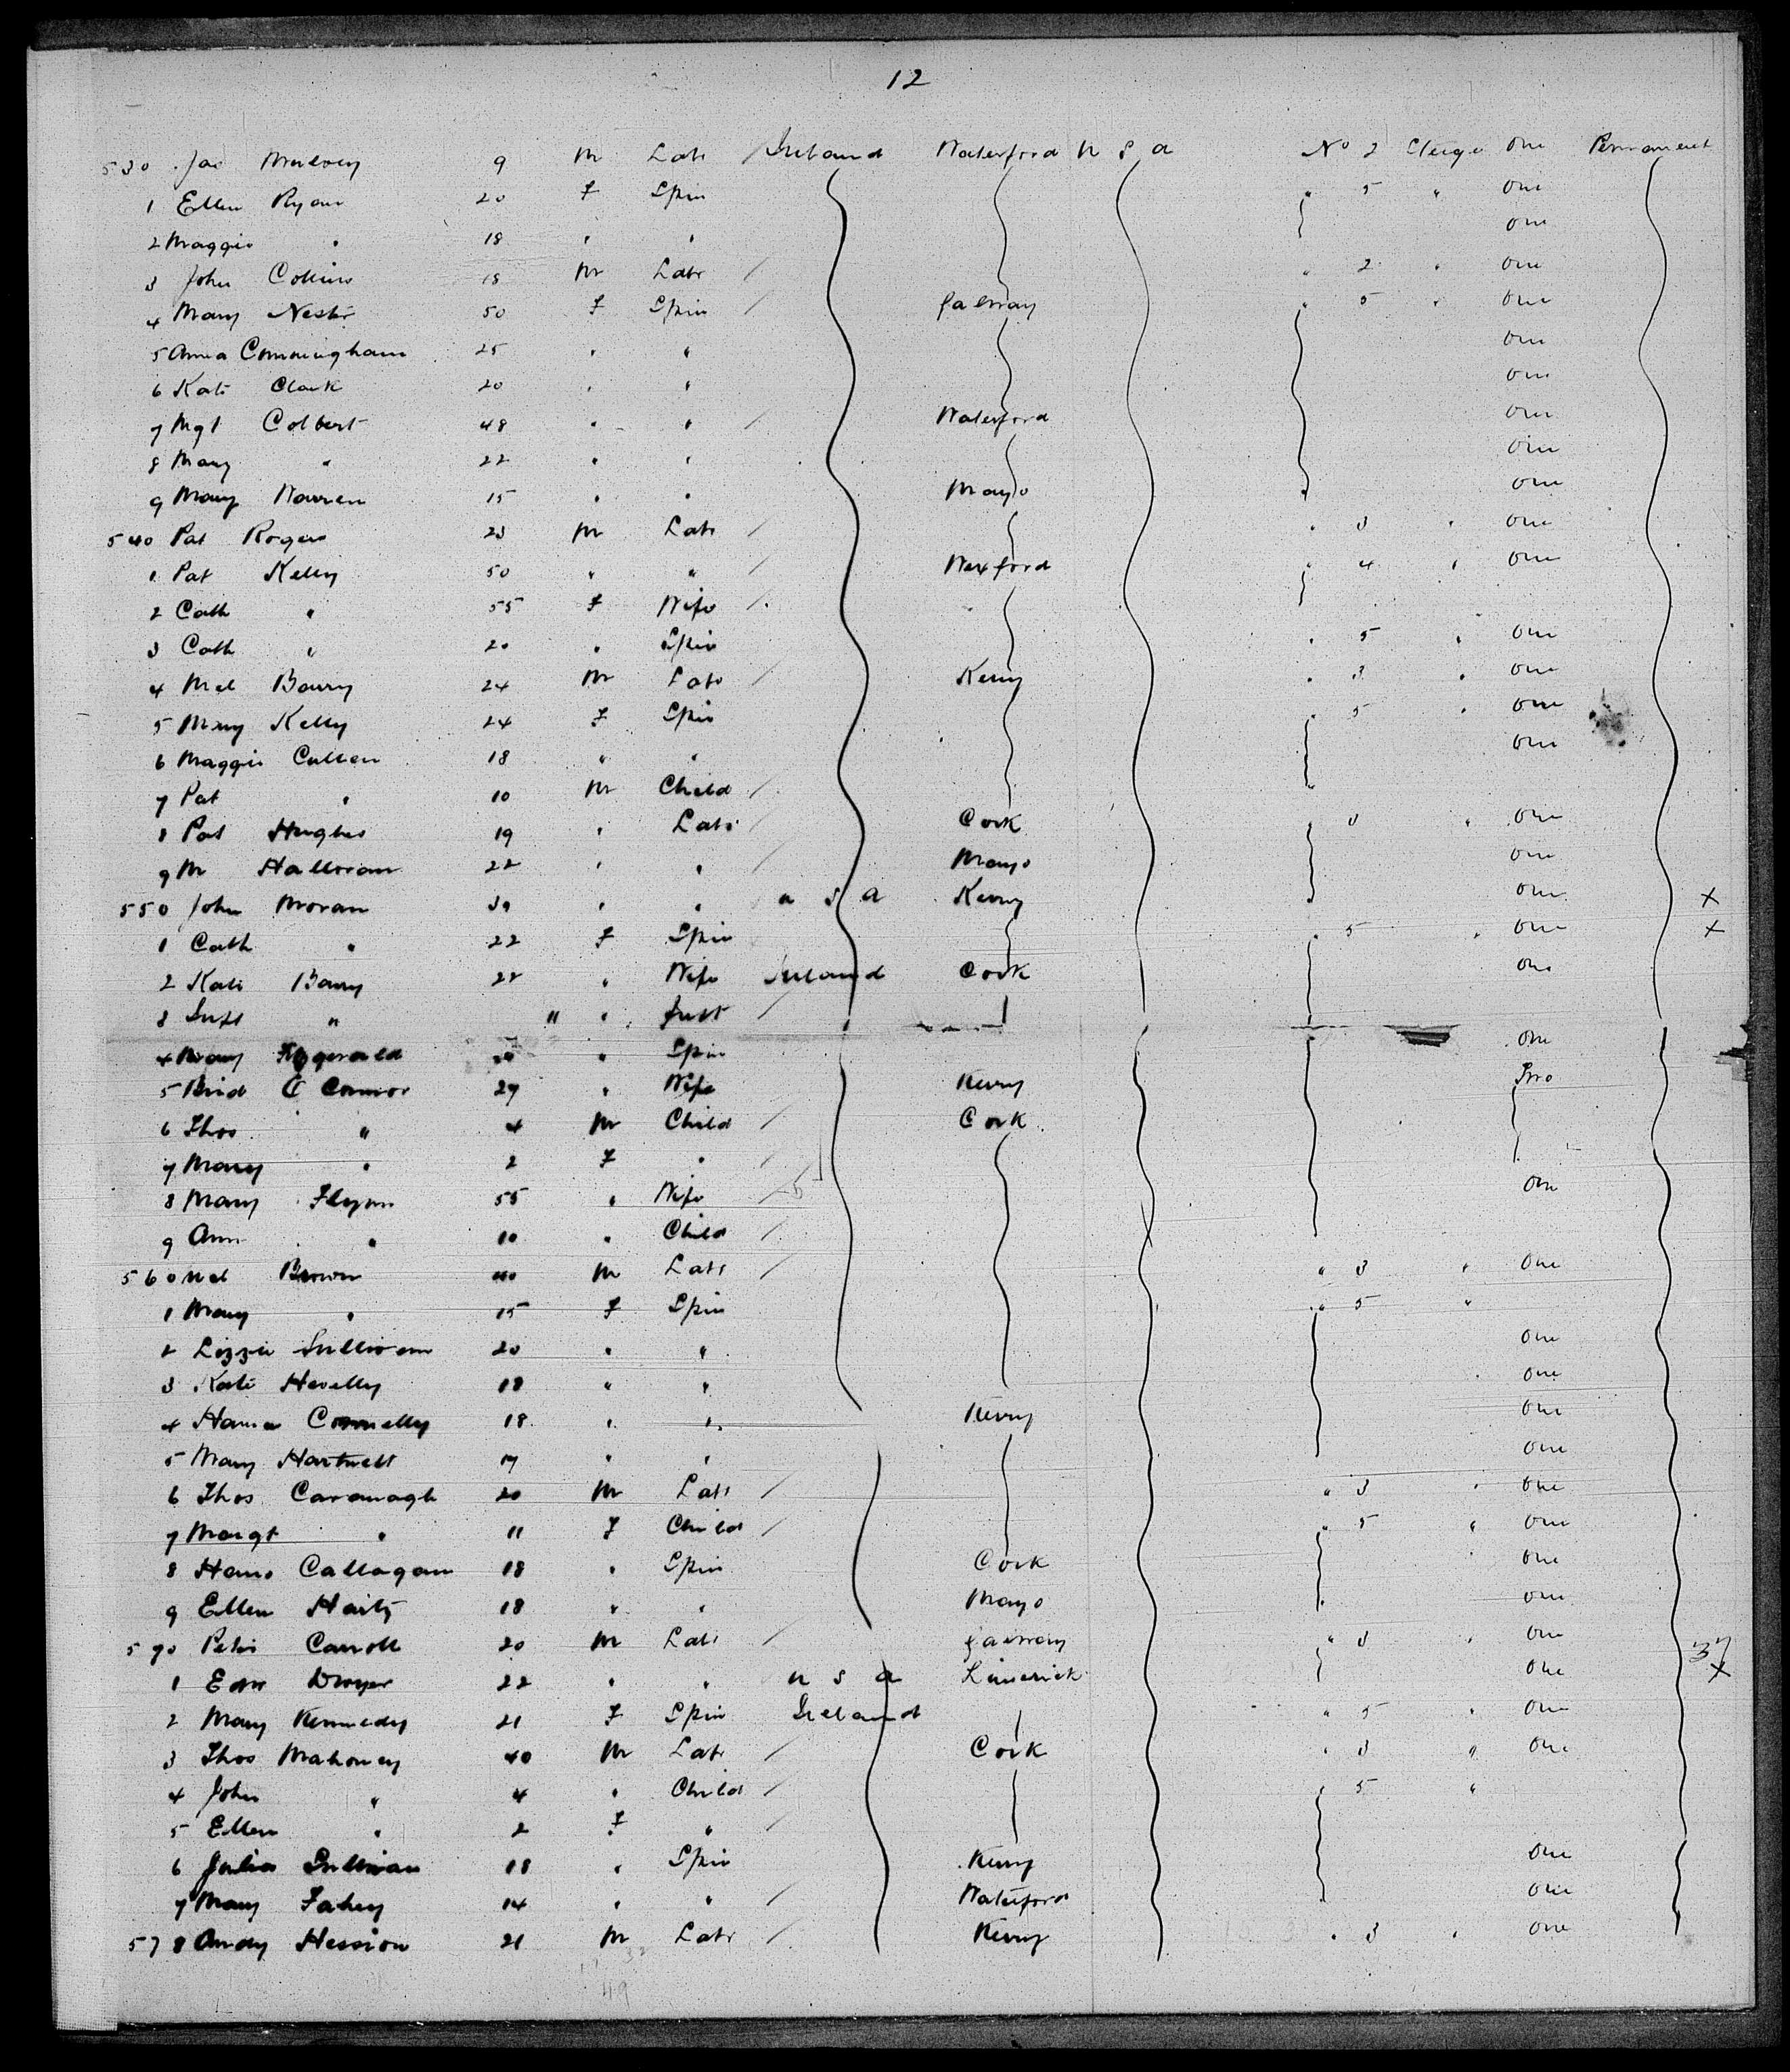 12
530 Jas Mulvey 9 M Labr / Ireland Waterford U S A No 2 Steige One Permanent
1 Ellen Ryan 20 F Spin " 5 " One
2 Maggie " 18 " " One
3 John Collins 18 M Labr / " 2 " One
4 Mary Nestr 50 F Spin / Galway " 5 " One
5 Anna Conningham 25 " " One
6 Kate Clark 20 " " One
7 Mgt Colbert 48 " " / Waterford One
8 Mary " 22 " " One
9 Mary Warren 15 " " Mayo One
540 Pat Rogers 23 M Labr / " 3 " One
1 Pat Kelly 50 " " / Wexford " 4 " One
2 Cath " 55 F Wife /
3 Cath " 20 " Spin " 5 " One
4 Mcl Barry 24 M Labr / Kerry " 3 " One
5 Mary Kelly 24 F Spin " 5 " One
6 Maggie Cullen 18 " " One
7 Pat " 10 M Child /
8 Pat Hughes 19 " Labr / Cork 3 " One
9 M Halloran 22 " " / Mayo One
550 John Moran 39 " " U S A Kerry One X
1 Cath " 22 F Spin " 5 " One X
2 Kate Barry 22 " Wife Ireland Cork One
3 Inft " 11 " Inft /
4 Mary Fitzgerald " Spin One
5 Brid O Connor 27 " Wife Kerry Two
6 Thos " 4 M Child / Cork
7 Mary " 2 F " /
8 Mary Flynn 55 " Wife One
9 Ann " 10 " Child /
560 Mcl Brown 40 M Labr / " 3 " One
1 Mary " 15 F Spin " 5 "
2 Lizzie Sullivan 20 " " One
3 Kate Hevelly 18 " " One
4 Hanna Connelly 18 " " Kerry One
5 Mary Hartnett 17 " " One
6 Thos Cavanagh 20 M Labr / " 3 " One
7 Margt " 11 F Child / " 5 " One
8 Hano Callagan 18 " Spin Cork One
9 Ellen Harty 18 " " Mayo One
570 Peter Carroll 20 M Labr / Galway " 3 " One 37
1 Edw Dwyer 22 " " U S A Limerick One X
2 Mary Kennedy 21 F Spin Ireland " 5 " One
3 Thos Mahoney 40 M Labr / Cork " 3 " One
4 John " 4 " Child / " 5 "
5 Ellen " 2 F " /
6 Julia Sullivan 18 " Spin Kerry One
7 Mary Fahey 14 " " / Waterford One
578 Andy Hession 21 M Labr / Kerry " 3 " One
49